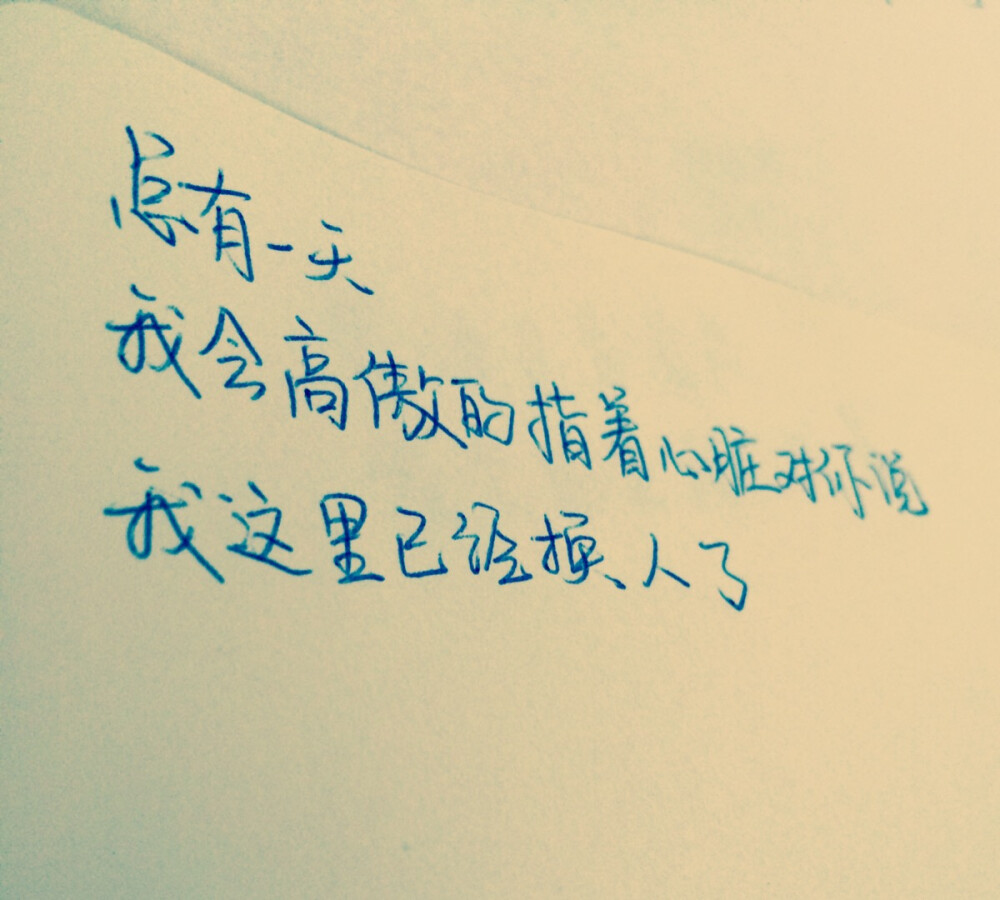 总有一天
我会高傲的指着心脏对你说
我这里已经换人了